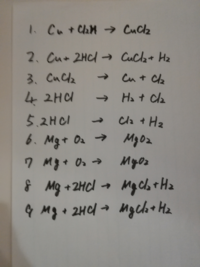 1. Cu + Cl2 → CuCl2
2. Cu + 2HCl → CuCl2 + H2
3. CuCl2 → Cu + Cl2
4. 2HCl → H2 + Cl2
5. 2HCl → Cl2 + H2
6. Mg + O2 → MgO2
7 Mg + O2 → MgO2
8 Mg + 2HCl → MgCl2 + H2
9 Mg + 2HCl → MgCl2 + H2